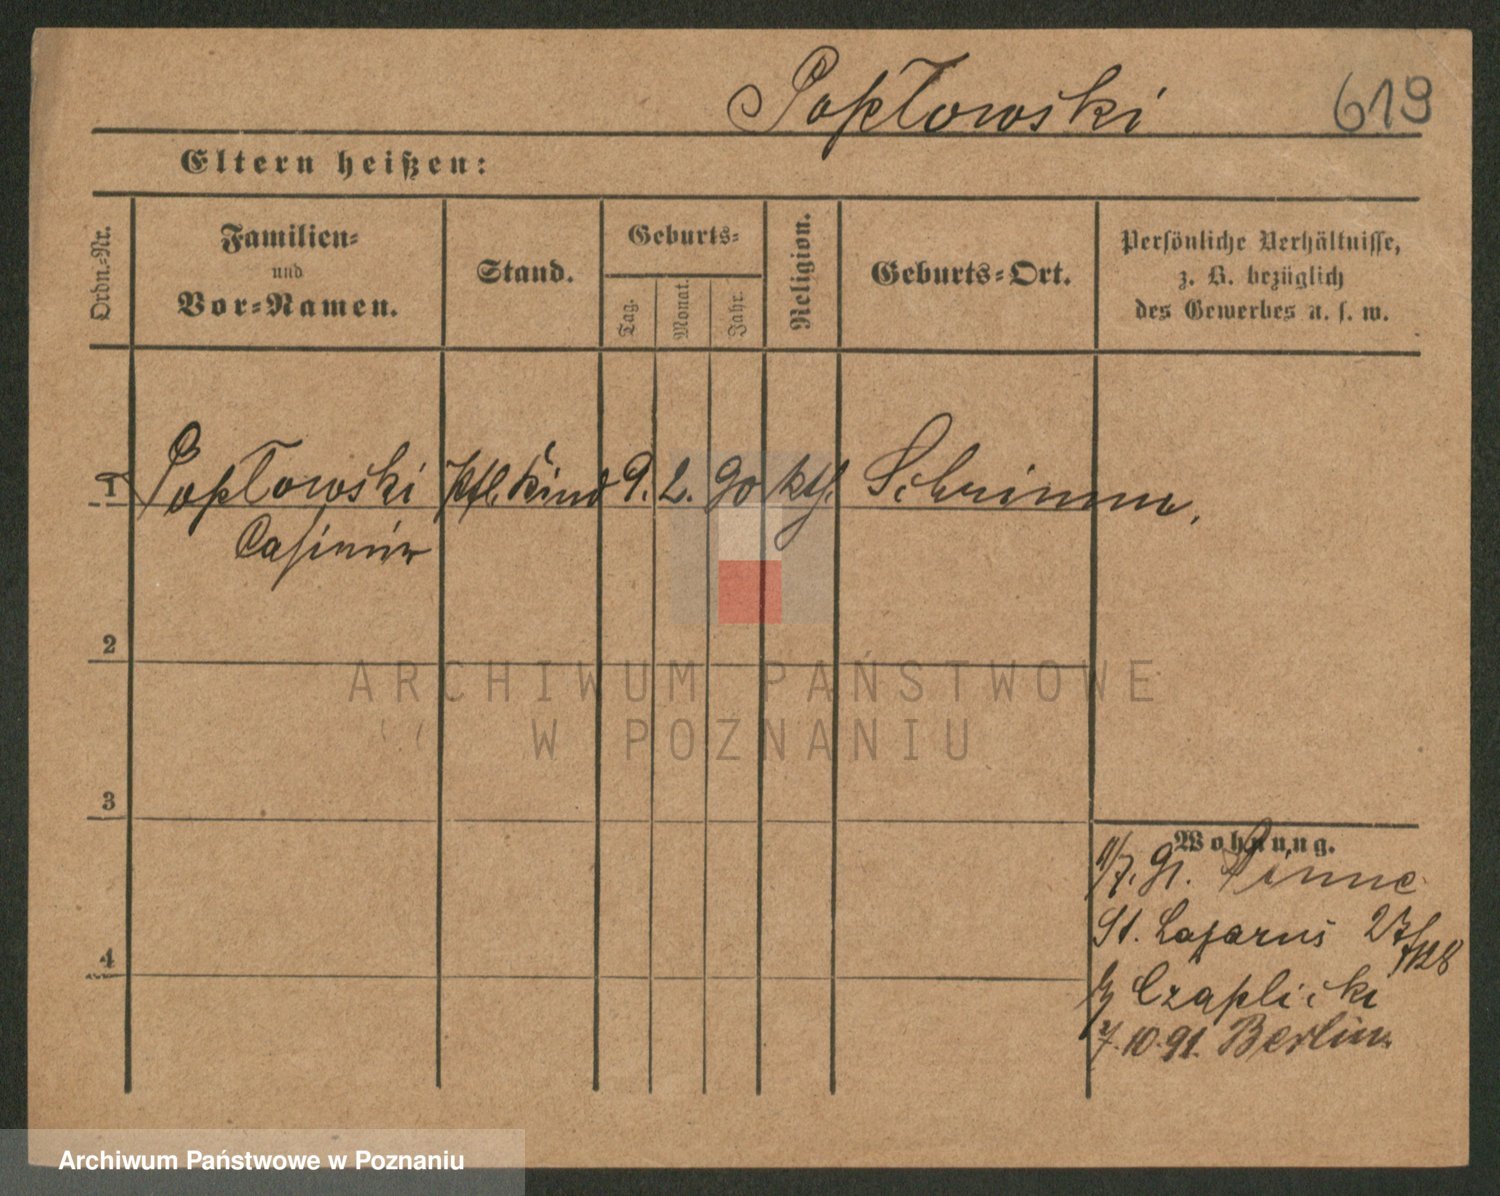 Popłowski 619
Eltern heißen:
Ordn.-Nr.
Familien-
und
Vor-Namen.
Stand.
Geburts-
Tag.
Monat.
Jahr.
Religion.
Geburts-Ort.
Persönliche Verhältnisse,
z. B. bezüglich
des Gewerbes u. s. w.
1 Popłowski Pfl. Kind 9. 2. 90 kth. Schrimm.
Casimir
2
3
4
Wohnung.
Pinne
St. Lazarus
Czaplicki
10.91. Berlin
ARCHIWUM PAŃSTWOWE
W POZNANIU
Archiwum Państwowe w Poznaniu